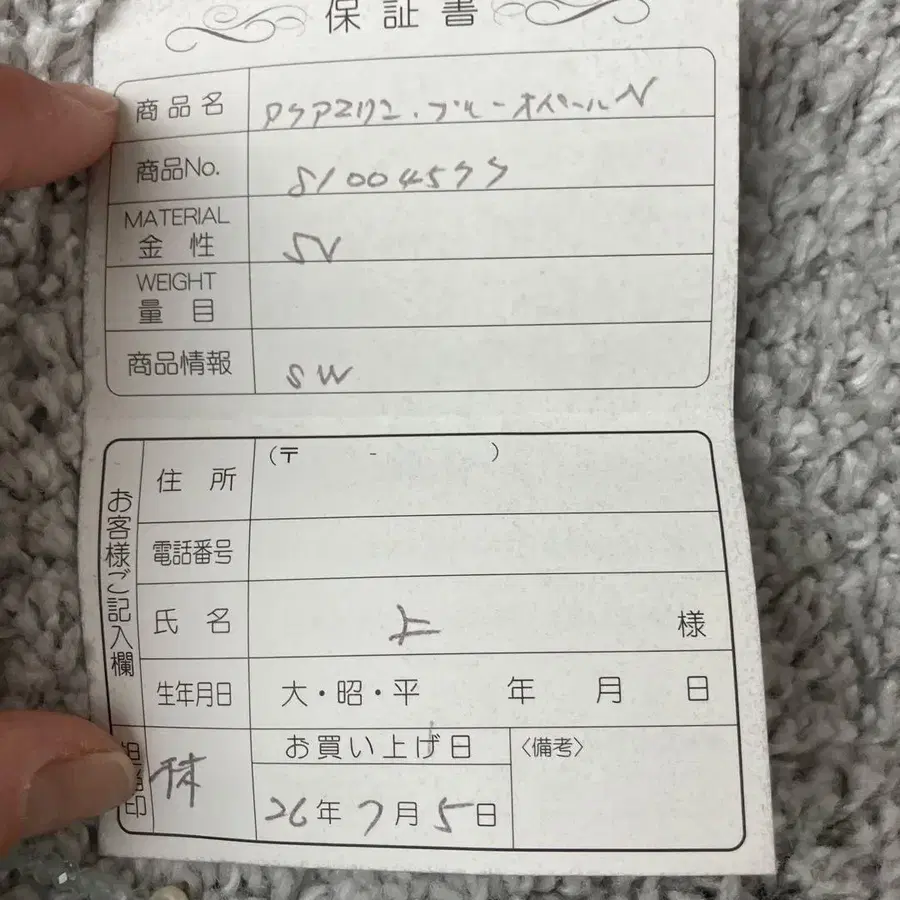 保証書
商品名 アクアマリン・ブルーオパールN
商品No. S1004577
MATERIAL
金性 SV
WEIGHT
量目
商品情報 SW
お客様ご記入欄
住所 (〒 - )
電話番号
氏名 上 様
生年月日 大・昭・平 年 月 日
担当印 林
お買い上げ日 〈備考〉
26年7月5日